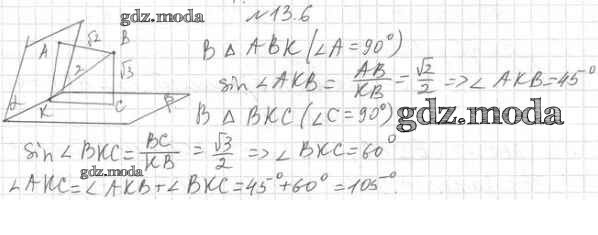 №13.6
gdz.moda
A √2 B
2 √3
α K C β
В △ ABK (∠A=90°)
sin ∠AKB = AB/KB = √2/2 => ∠AKB=45°
В △ BKC (∠C=90°)
gdz.moda
sin ∠BKC = BC/KB = √3/2 => ∠BKC=60°
gdz.moda
∠AKC=∠AKB+∠BKC=45°+60°=105°.